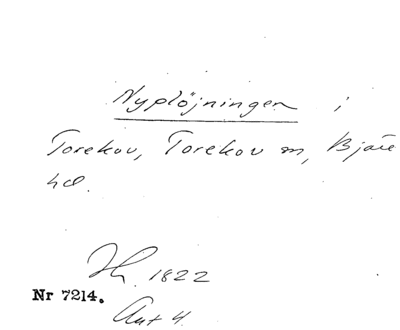 Nyplöjningen i
Torekov, Torekov sn, Bjäre
hd.
Jh. 1822
Nr 7214.
Ant 4.